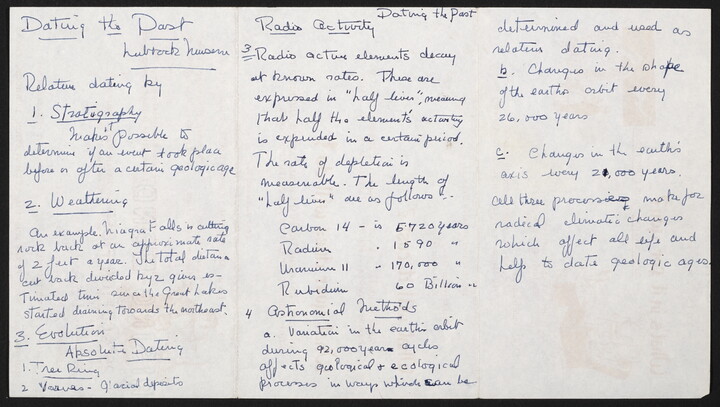 Dating the Past
Lubbock Museum
Relative dating by
1. Stratography
Makes it possible to
determine if an event took place
before or after a certain geologic age
2. Weathering
An example. Niagra Falls is cutting
rock back at an approximate rate
of 2 feet a year. The total distance
cut back divided by 2 gives es-
timated time since the Great Lakes
started draining towards the northeast.
3. Evolution
Absolute Dating
1. Tree Ring
2 Varves - glacial deposits
Dating the Past
Radio Activity
3 Radio active elements decay
at known rates. These are
expressed in "half lives", meaning
that half the elements' activity
is expended in a certain period.
The rate of depletion is
measurable. The length of
"half lives" are as follows -
Carbon 14 - is 5720 years
Radium - 1590 "
Uranium II - 170,000 "
Rubidium 60 Billion "
4 Astronomial Methods
a. Variation in the earth's orbit
during 92,000 year cycles
affects geological & ecological
processes in ways which can be
determined and used as
relative dating.
b. Changes in the shape
of the earths orbit every
26,000 years
c. Changes in the earth's
axis every 21,000 years.
All three process make for
radical climatic changes
which affect all life and
help to date geologic ages.